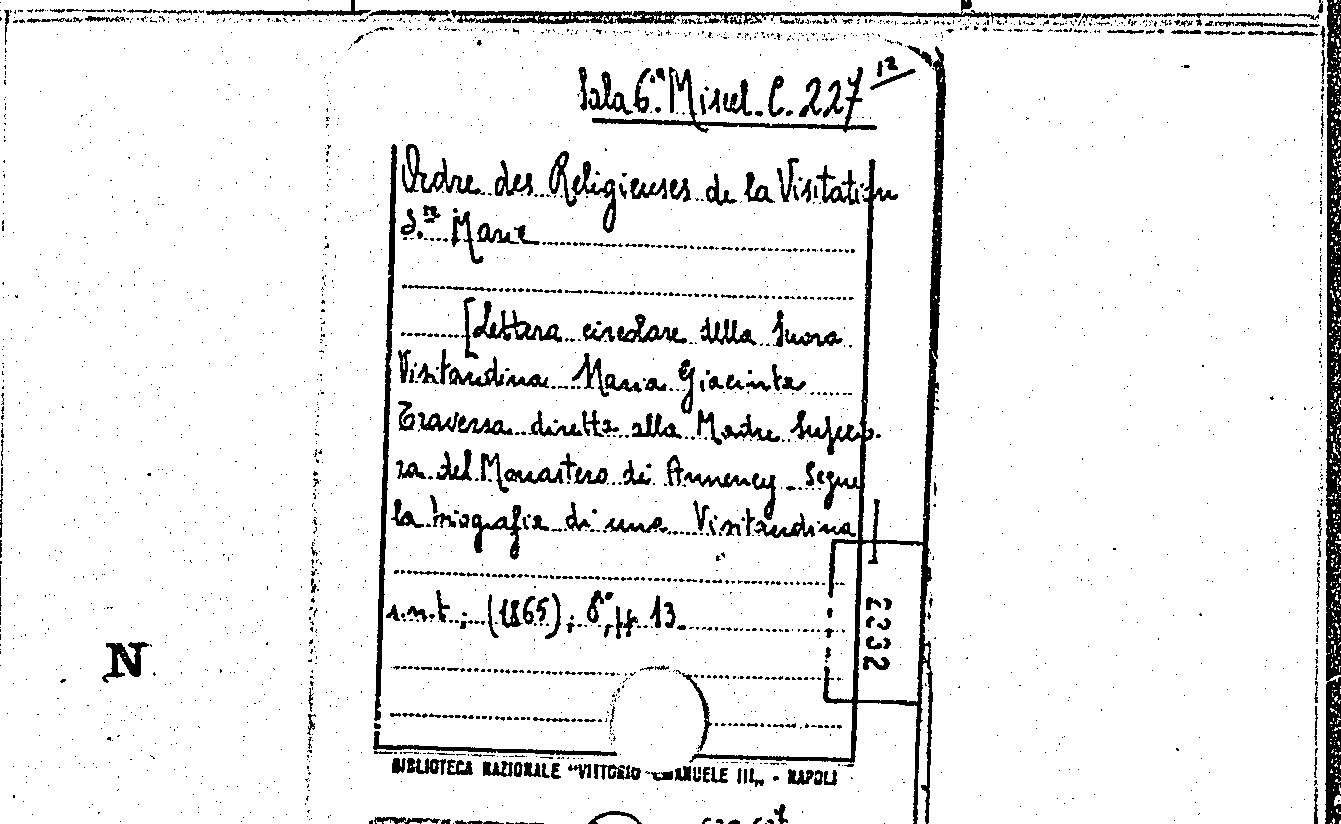 Sala 6.ª Miscel. C. 227 12
Ordre des Religieuses de la Visitation
S.te Marie
[Lettera circolare della Suora
Visitandina Maria Giacinta
Traversa diretta alla Madre Superio-
ra del Monastero di Annency. Segue
la biografia di una Visitandina
s.n.t.; (1865); 8°, pp. 13.
2232
N
BIBLIOTECA NAZIONALE "VITTORIO EMANUELE III„ - NAPOLI